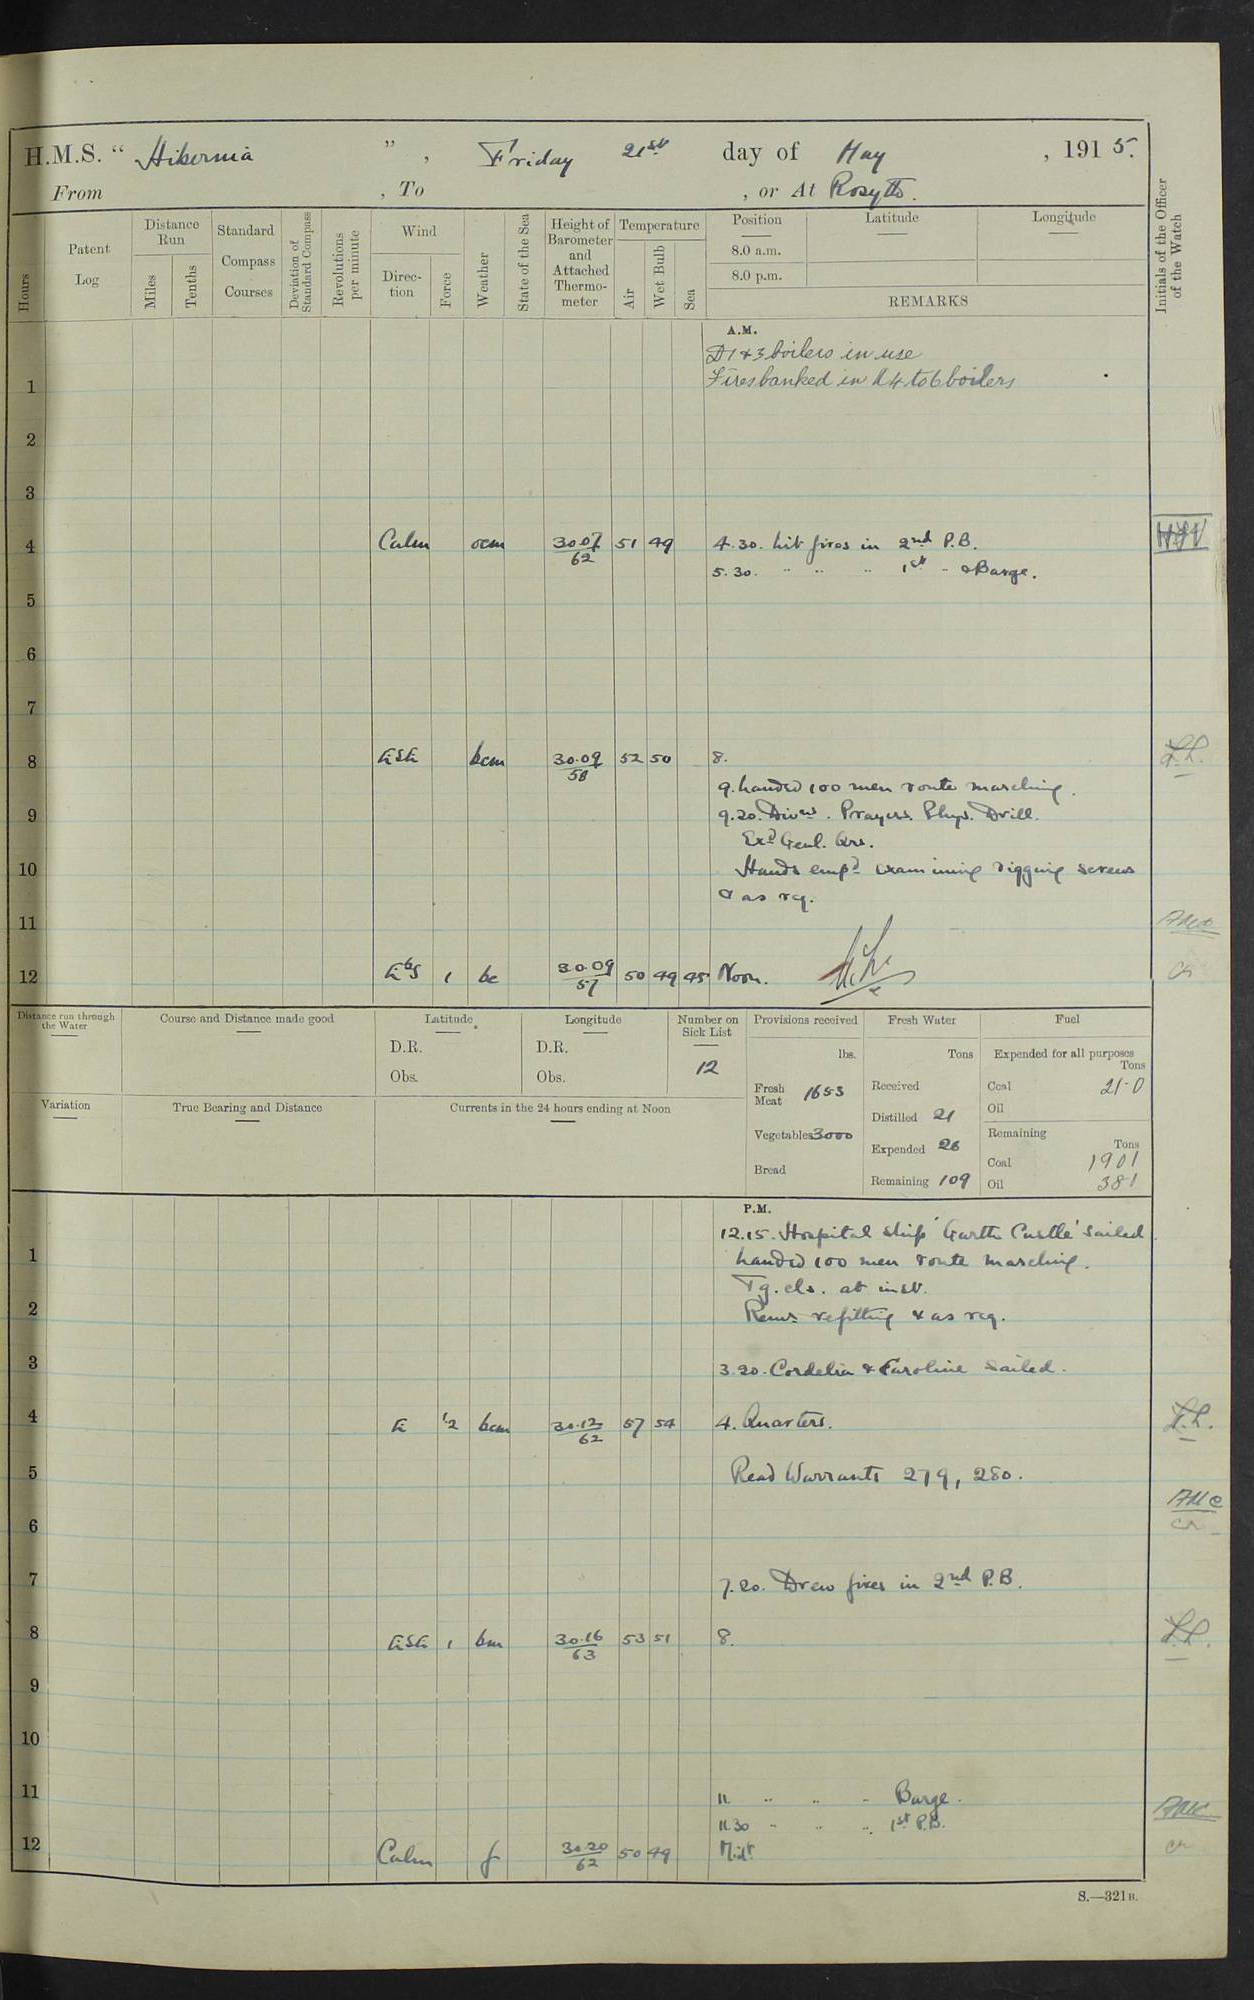 H.M.S. “ Hibernia ” , Friday 21st day of May , 1915.
From , To , or At Rosyth.
Hours
Patent Log
Distance Run
Miles
Tenths
Standard Compass Courses
Deviation of Standard Compass
Revolutions per minute
Wind
Direc-tion
Force
Weather
State of the Sea
Height of Barometer and Attached Thermo-meter
Temperature
Air
Wet Bulb
Sea
Position
8.0 a.m.
8.0 p.m.
Latitude
Longitude
REMARKS
Initials of the Officer of the Watch
A.M.
1 & 3 boilers in use
1 Fires banked in 4 to 6 boilers
2
3
4 Calm ocm 30.07/62 51 49 4.30. Lit fires in 2nd P.B.
5.30. " " " 1st " & Barge.
5
6
7
8 ESE bcm 30.09/58 52 50 8.
9. Landed 100 men route marching.
9 9.20. Divns. Prayers. Phys. Drill.
Exd Genl. Qrs.
10 Hands empd examining rigging screws
& as req.
11
12 EbS 1 bc 30.09/57 50 49 45 Noon.
Distance run through the Water
Course and Distance made good
Latitude
D.R.
Obs.
Longitude
D.R.
Obs.
Number on Sick List
12
Provisions received
lbs.
Fresh Meat 1653
Vegetables 3000
Bread
Fresh Water
Tons
Received
Distilled 21
Expended 26
Remaining 109
Fuel
Expended for all purposes
Tons
Coal 21.0
Oil
Remaining
Tons
Coal 1901
Oil 381
Variation
True Bearing and Distance
Currents in the 24 hours ending at Noon
P.M.
12.15. Hospital ship 'Garth Castle' sailed
1 Landed 100 men route marching.
Tg. cls. at inst.
2 Remr refitting & as req.
3 3.20. Cordelia & Caroline sailed.
4 E 1/2 bcm 30.12/62 57 54 4. Quarters.
5 Read Warrants 279, 280.
6
7 7.20. Drew fires in 2nd P.B.
8 ESE 1 bm 30.16/63 53 51 8.
9
10
11 11 " " " Barge.
11.30 " " " 1st P.B.
12 Calm f 30.20/62 50 49 Midt
S.—321B.